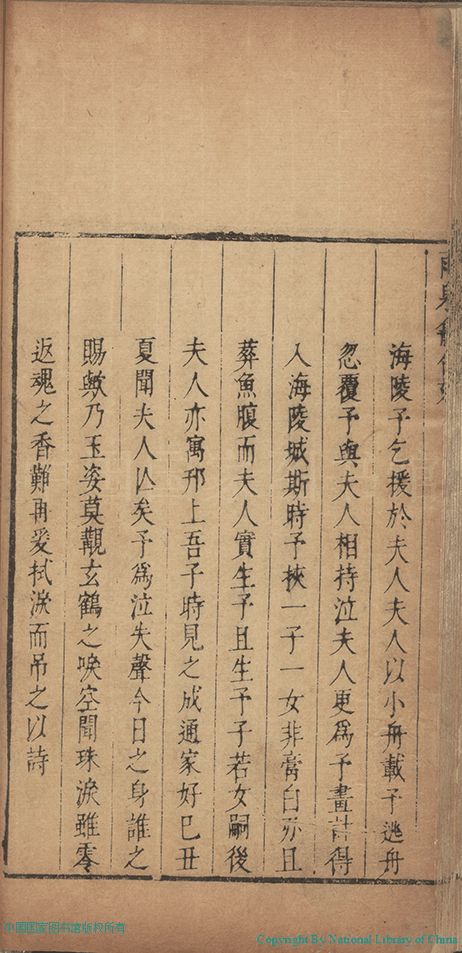 海陵予乞援於夫人夫人以小舟載予逃舟
忽覆予與夫人相持泣夫人更爲予畫計得
入海陵城斯時予挾一子一女非啻白刃且
葬魚腹而夫人實生予且生予子若女嗣後
夫人亦寓邗上吾子時見之成通家好已丑
夏聞夫人亾矣予爲泣失聲今日之身誰之
賜歟乃玉姿莫覩玄鶴之唳空聞珠淚雖零
返魂之香難再爰拭淚而吊之以詩
中國国家图书馆版权所有
Copyright By National Library of China